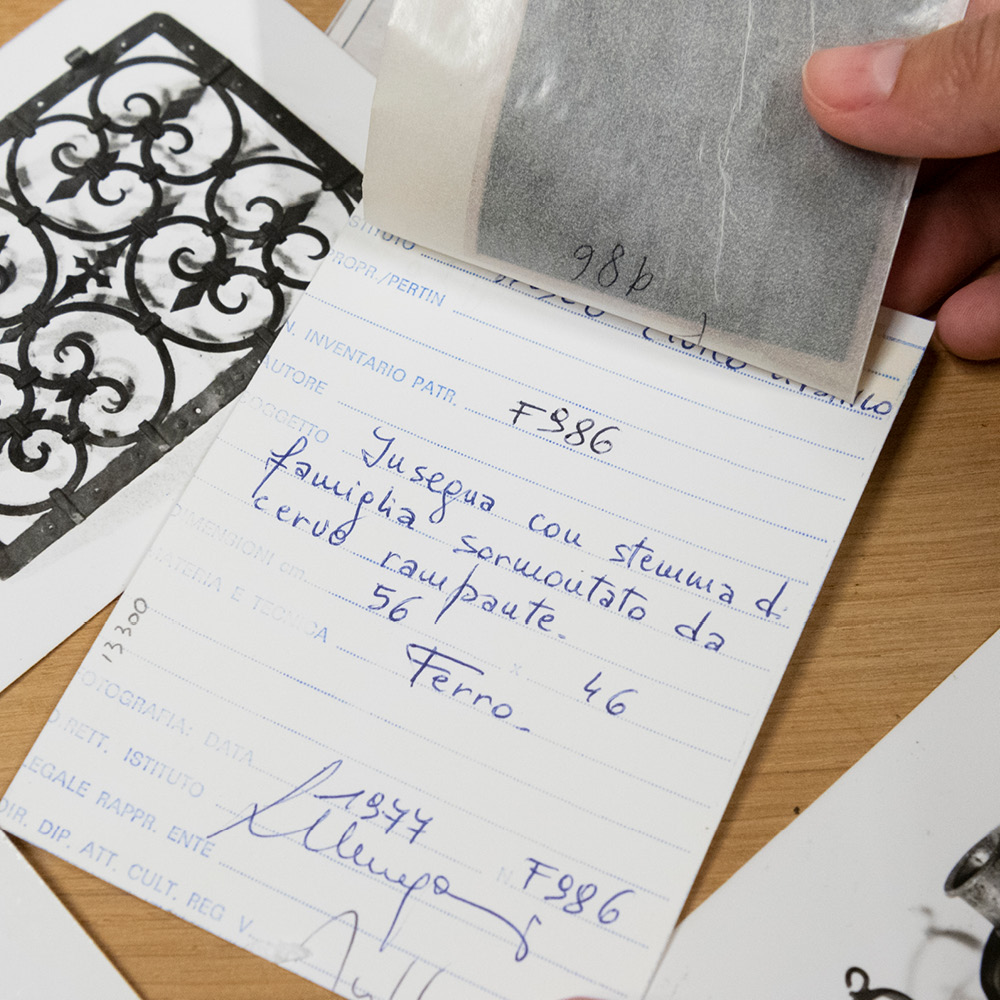 98b
ISTITUTO
PROPR./PERTIN
N. INVENTARIO PATR. F986
AUTORE
SOGGETTO Insegna con stemma di
famiglia sormontato da
cervo rampante.
DIMENSIONI cm. 56 x 46
MATERIA E TECNICA Ferro.
13300
FOTOGRAFIA: DATA 1977 N. F986
DIRETT. ISTITUTO
LEGALE RAPPR. ENTE
DIR. DIP. ATT. CULT. REG V.